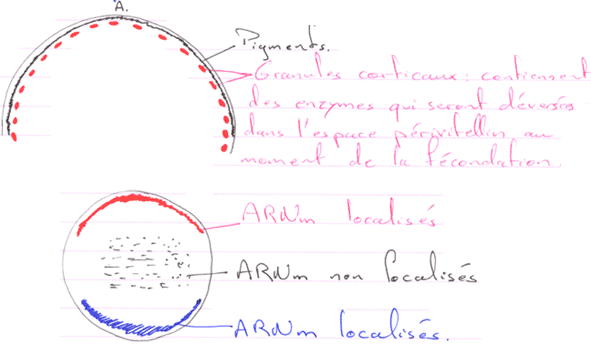 A.
Pigments.
Granules corticaux : contiennent
des enzymes qui seront déversées
dans l'espace périvitellin au
moment de la fécondation
ARNm localisés
ARNm non localisés
ARNm localisés.